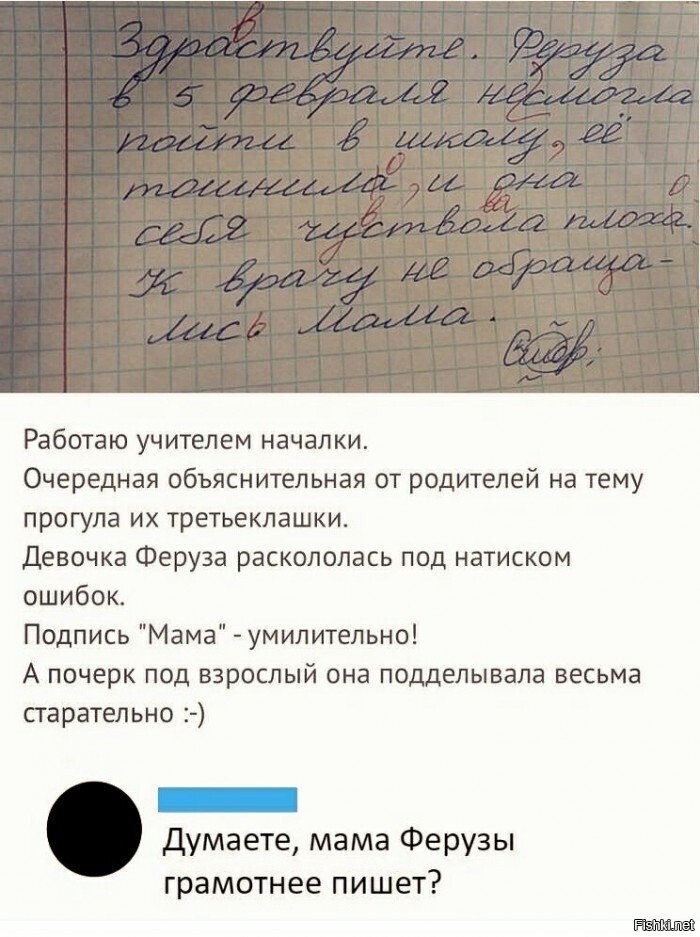 в
Здраствуйте. Феруза
в 5 февраля несмогла
пойти в школу, её
о
тошнила, и она
в ва о
себя чуствола плоха.
К врачу не обраща-
лись Мама.
Работаю учителем началки.
Очередная объяснительная от родителей на тему
прогула их третьеклашки.
Девочка Феруза раскололась под натиском
ошибок.
Подпись "Мама" - умилительно!
А почерк под взрослый она подделывала весьма
старательно :-)
Думаете, мама Ферузы
грамотнее пишет?
Fishki.net